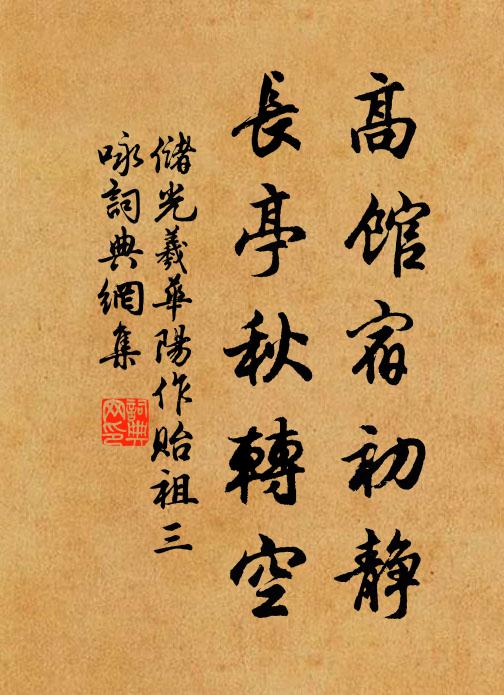 高館宿初静
長亭秋轉空
儲光羲華陽作貽祖三
咏詞典網集
詞典网印